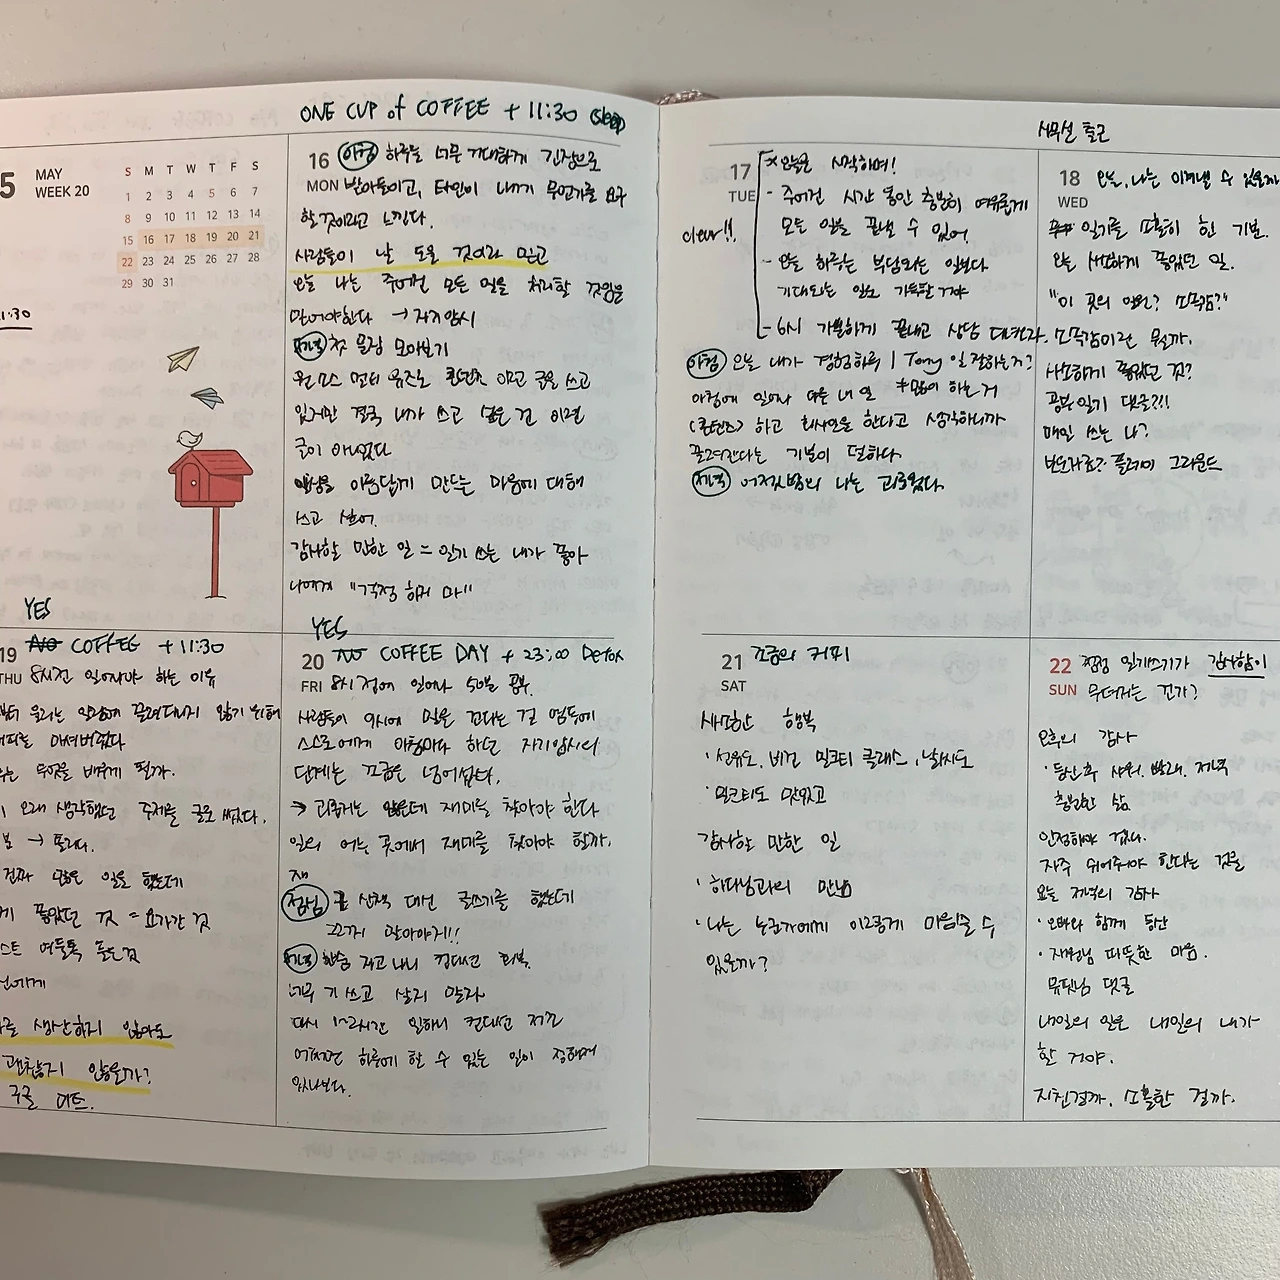 ONE CUP of COFFEE + 11:30 (sleep)
5 MAY
WEEK 20
S M T W T F S
1 2 3 4 5 6 7
8 9 10 11 12 13 14
15 16 17 18 19 20 21
22 23 24 25 26 27 28
29 30 31
1:30
16 MON
아침 하루를 너무 거대하게 긴장으로
받아들이고, 타인이 내게 무언가를 요구
할 것이라고 느낀다.
사람들이 날 도울 것이라 믿고
오늘 나는 주어진 모든 일을 처리할 것임을
믿어야한다 → 자기암시
저녁 첫 문장 모아보기
원 소스 멀티 유즈로 콘텐츠 이고 글을 쓰고
있지만 결국 내가 쓰고 싶은 건 이런
글이 아니었다.
일상을 아름답게 만드는 마음에 대해
쓰고 싶어.
감사할 만한 일 = 일기 쓰는 내가 좋아
나에게 "걱정 하지 마"
17 TUE
clear!!
* 오늘을 시작하며!
- 주어진 시간 동안 충분히 여유롭게
모든 일을 끝낼 수 있어.
- 오늘 하루는 부담되는 일보다
기대되는 일로 가득할 거야
- 6시 가뿐하게 끝내고 상담 다녀오자.
아침 오늘 내가 경험하루 | Tony 일 잘하는거?
≠많이 하는 거
아침에 일어나 다른 내 일
(콘텐츠) 하고 회사일을 한다고 생각하니까
끌려간다는 기분이 덜하다
저녁 어젯밤의 나는 괴로웠다.
사무실 출근
18 WED
오늘, 나는 이겨낼 수 있을까
일기를 소홀히 한 기분.
오늘 사소하게 좋았던 일.
"이 곳의 일원? 소속감?"
소속감이란 뭘까.
사소하게 좋았던 것?
공부일기 댓글?!!
매일 쓰는 나?
플레이 그라운드
YES
19 THU
NO COFFEE + 11:30
8시전 일어나야 하는 이유
부터 몰리는 일감에 끌려다니지 않기 위해
커피를 마셔버렸다
무엇을 배우게 될까.
오래 생각했던 주제를 글로 썼다.
→ 모르다.
진짜 많은 일을 했는데
좋았던 것 = 요가간 것
여드름 푸는것
에게
생산하지 않아도
괜찮지 않을까?
구글 미트.
YES
20 FRI
NO COFFEE DAY + 23:00 Detox
8시 전에 일어나 50분 공부.
사람들이 9시에 일을 준다는 걸 염두에
스스로에게 아침마다 하던 자기암시의
단계는 조금은 넘어섰다.
→ 괴롭지는 않은데 재미를 찾아야 한다
일의 어느 곳에서 재미를 찾아야 할까.
재
점심 글 산책 대신 글쓰기를 했는데
끄까지 말아야지!!
저녁 한숨 자고 나니 컨디션 회복.
너무 기 쓰고 살지 말자
다시 1~2시간 일하니 컨디션 저조
어쩌면 하루에 할 수 있는 일이 정해져
있나보다.
21 SAT
조금의 커피
사소한 행복
· 선유도, 비건 밀크티 클래스, 날씨도
· 밀크티도 맛있고
감사할 만한 일
· 하다님과의 만남
· 나는 누군가에게 이렇게 마음쓸 수
있을까?
22 SUN
점점 일기쓰기가 감사함이
무뎌지는 건가?
오후의 감사
· 등산 후 샤워, 빨래, 저녁
충실한 삶
인정해야 겠다.
자주 쉬어주어야 한다는 것을
오늘 저녁의 감사
· 오빠와 함께 등산
· 지원님 따뜻한 마음.
뮤팃님 댓글
내일의 일은 내일의 내가
할 거야.
지친걸까. 소홀한 걸까.